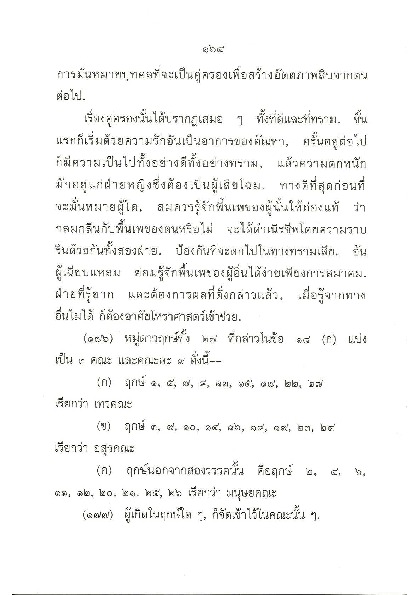 ๑๖๘
การมั่นหมายบุคคลที่จะเป็นคู่ครองเพื่อสร้างอัตตภาพสืบจากตน
ต่อไป.
เรื่องคู่ครองนั้นได้ปรากฏเสมอ ๆ ทั้งที่ดีและที่ทราม. ชั้น
แรกก็เริ่มด้วยความรักอันเป็นอาการของตัณหา, ครั้นอยู่ต่อไป
ก็มีความเป็นไปทั้งอย่างดีทั้งอย่างทราม, แล้วความตกหนัก
มักอยู่แก่ฝ่ายหญิงซึ่งต้องเป็นผู้เสียโฉม. ทางดีที่สุดก่อนที่
จะมั่นหมายผู้ใด, สมควรรู้จักพื้นเพของผู้นั้นให้ถ่องแท้ ว่า
กลมกลืนกับพื้นเพของตนหรือไม่ จะได้ดำเนิรชีพโดยความราบ
รื่นด้วยกันทั้งสองฝ่าย. ป้องกันที่จะตกไปในทางทรามเสีย. อัน
ผู้เฉียบแหลม ย่อมรู้จักพื้นเพของผู้อื่นได้ง่ายเพียงการสมาคม.
ฝ่ายที่รู้ยาก และต้องการผลที่ดั่งกล่าวแล้ว, เมื่อรู้จากทาง
อื่นไม่ได้ ก็ต้องอาศัยโหราศาสตร์เข้าช่วย.
(๑๗๖) หมู่ดาวฤกษ์ทั้ง ๒๗ ที่กล่าวในข้อ ๑๘ (ก) แบ่ง
เป็น ๓ คณะ และคณะละ ๙ ดั่งนี้--
(ก) ฤกษ์ ๑, ๕, ๗, ๘, ๑๓, ๑๕, ๑๗, ๒๒, ๒๗
เรียกว่า เทวคณะ
(ข) ฤกษ์ ๓, ๙, ๑๐, ๑๔, ๑๖, ๑๘, ๑๙, ๒๓, ๒๔
เรียกว่า อสุรคณะ
(ค) ฤกษ์นอกจากสองวรรคนั้น คือฤกษ์ ๒, ๔, ๖,
๑๑, ๑๒, ๒๐, ๒๑, ๒๕, ๒๖ เรียกว่า มนุษยคณะ
(๑๗๗) ผู้เกิดในฤกษ์ใด ๆ, ก็จัดเข้าไว้ในคณะนั้น ๆ.